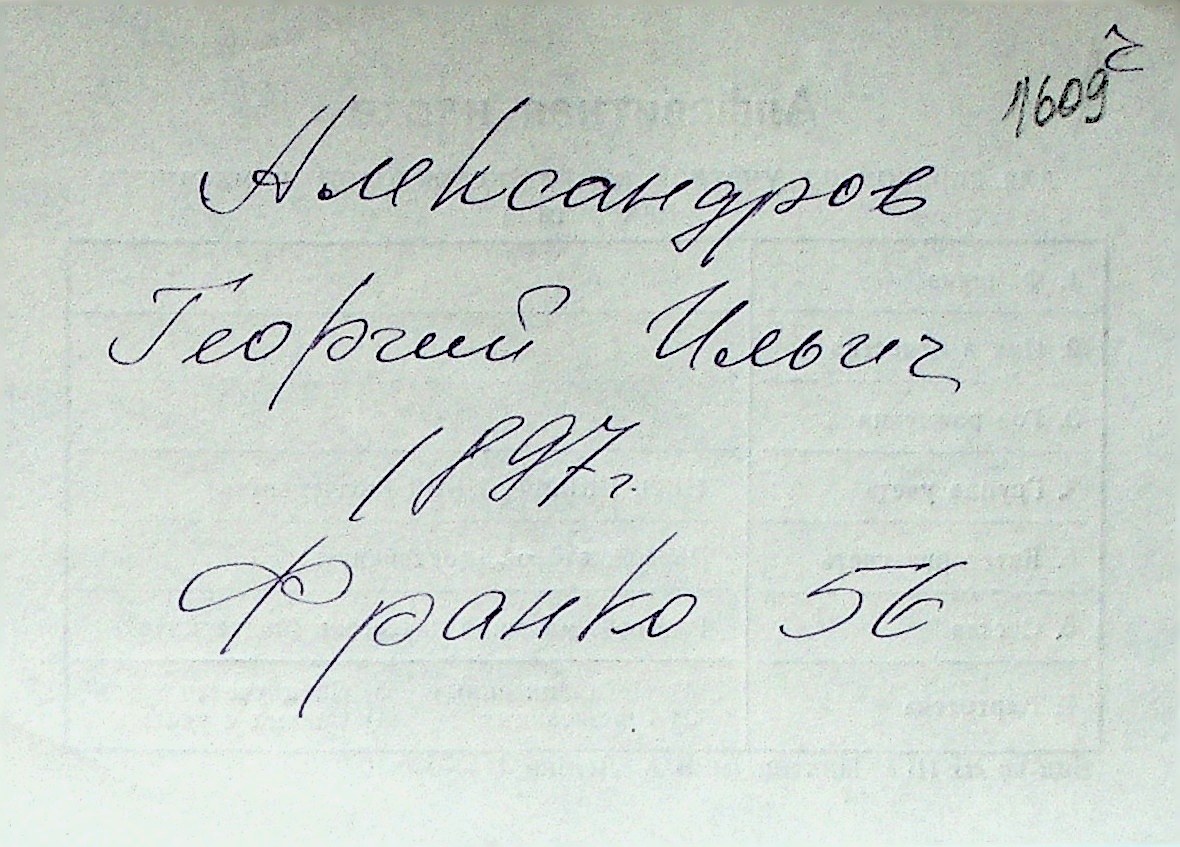 1609
Александров
Георгий Ильич
1897г.
Франко 56